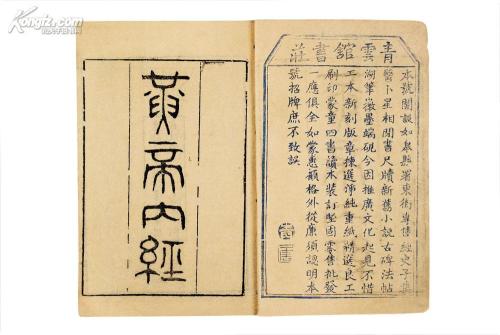 青雲舘書莊
本號開設如皋縣署東街專售經史子集
醫卜星相閒書尺牘新舊小說古碑法帖
湖筆徽墨端硯今因推廣文化起見不惜
工本新刻版章揀選淨純重紙精選良工
刷印蒙童四書讀本裝訂堅固零售批發
一應俱全如蒙惠顧格外從廉須認明本
號招牌庶不致誤
黃帝內經
Kongfz.com